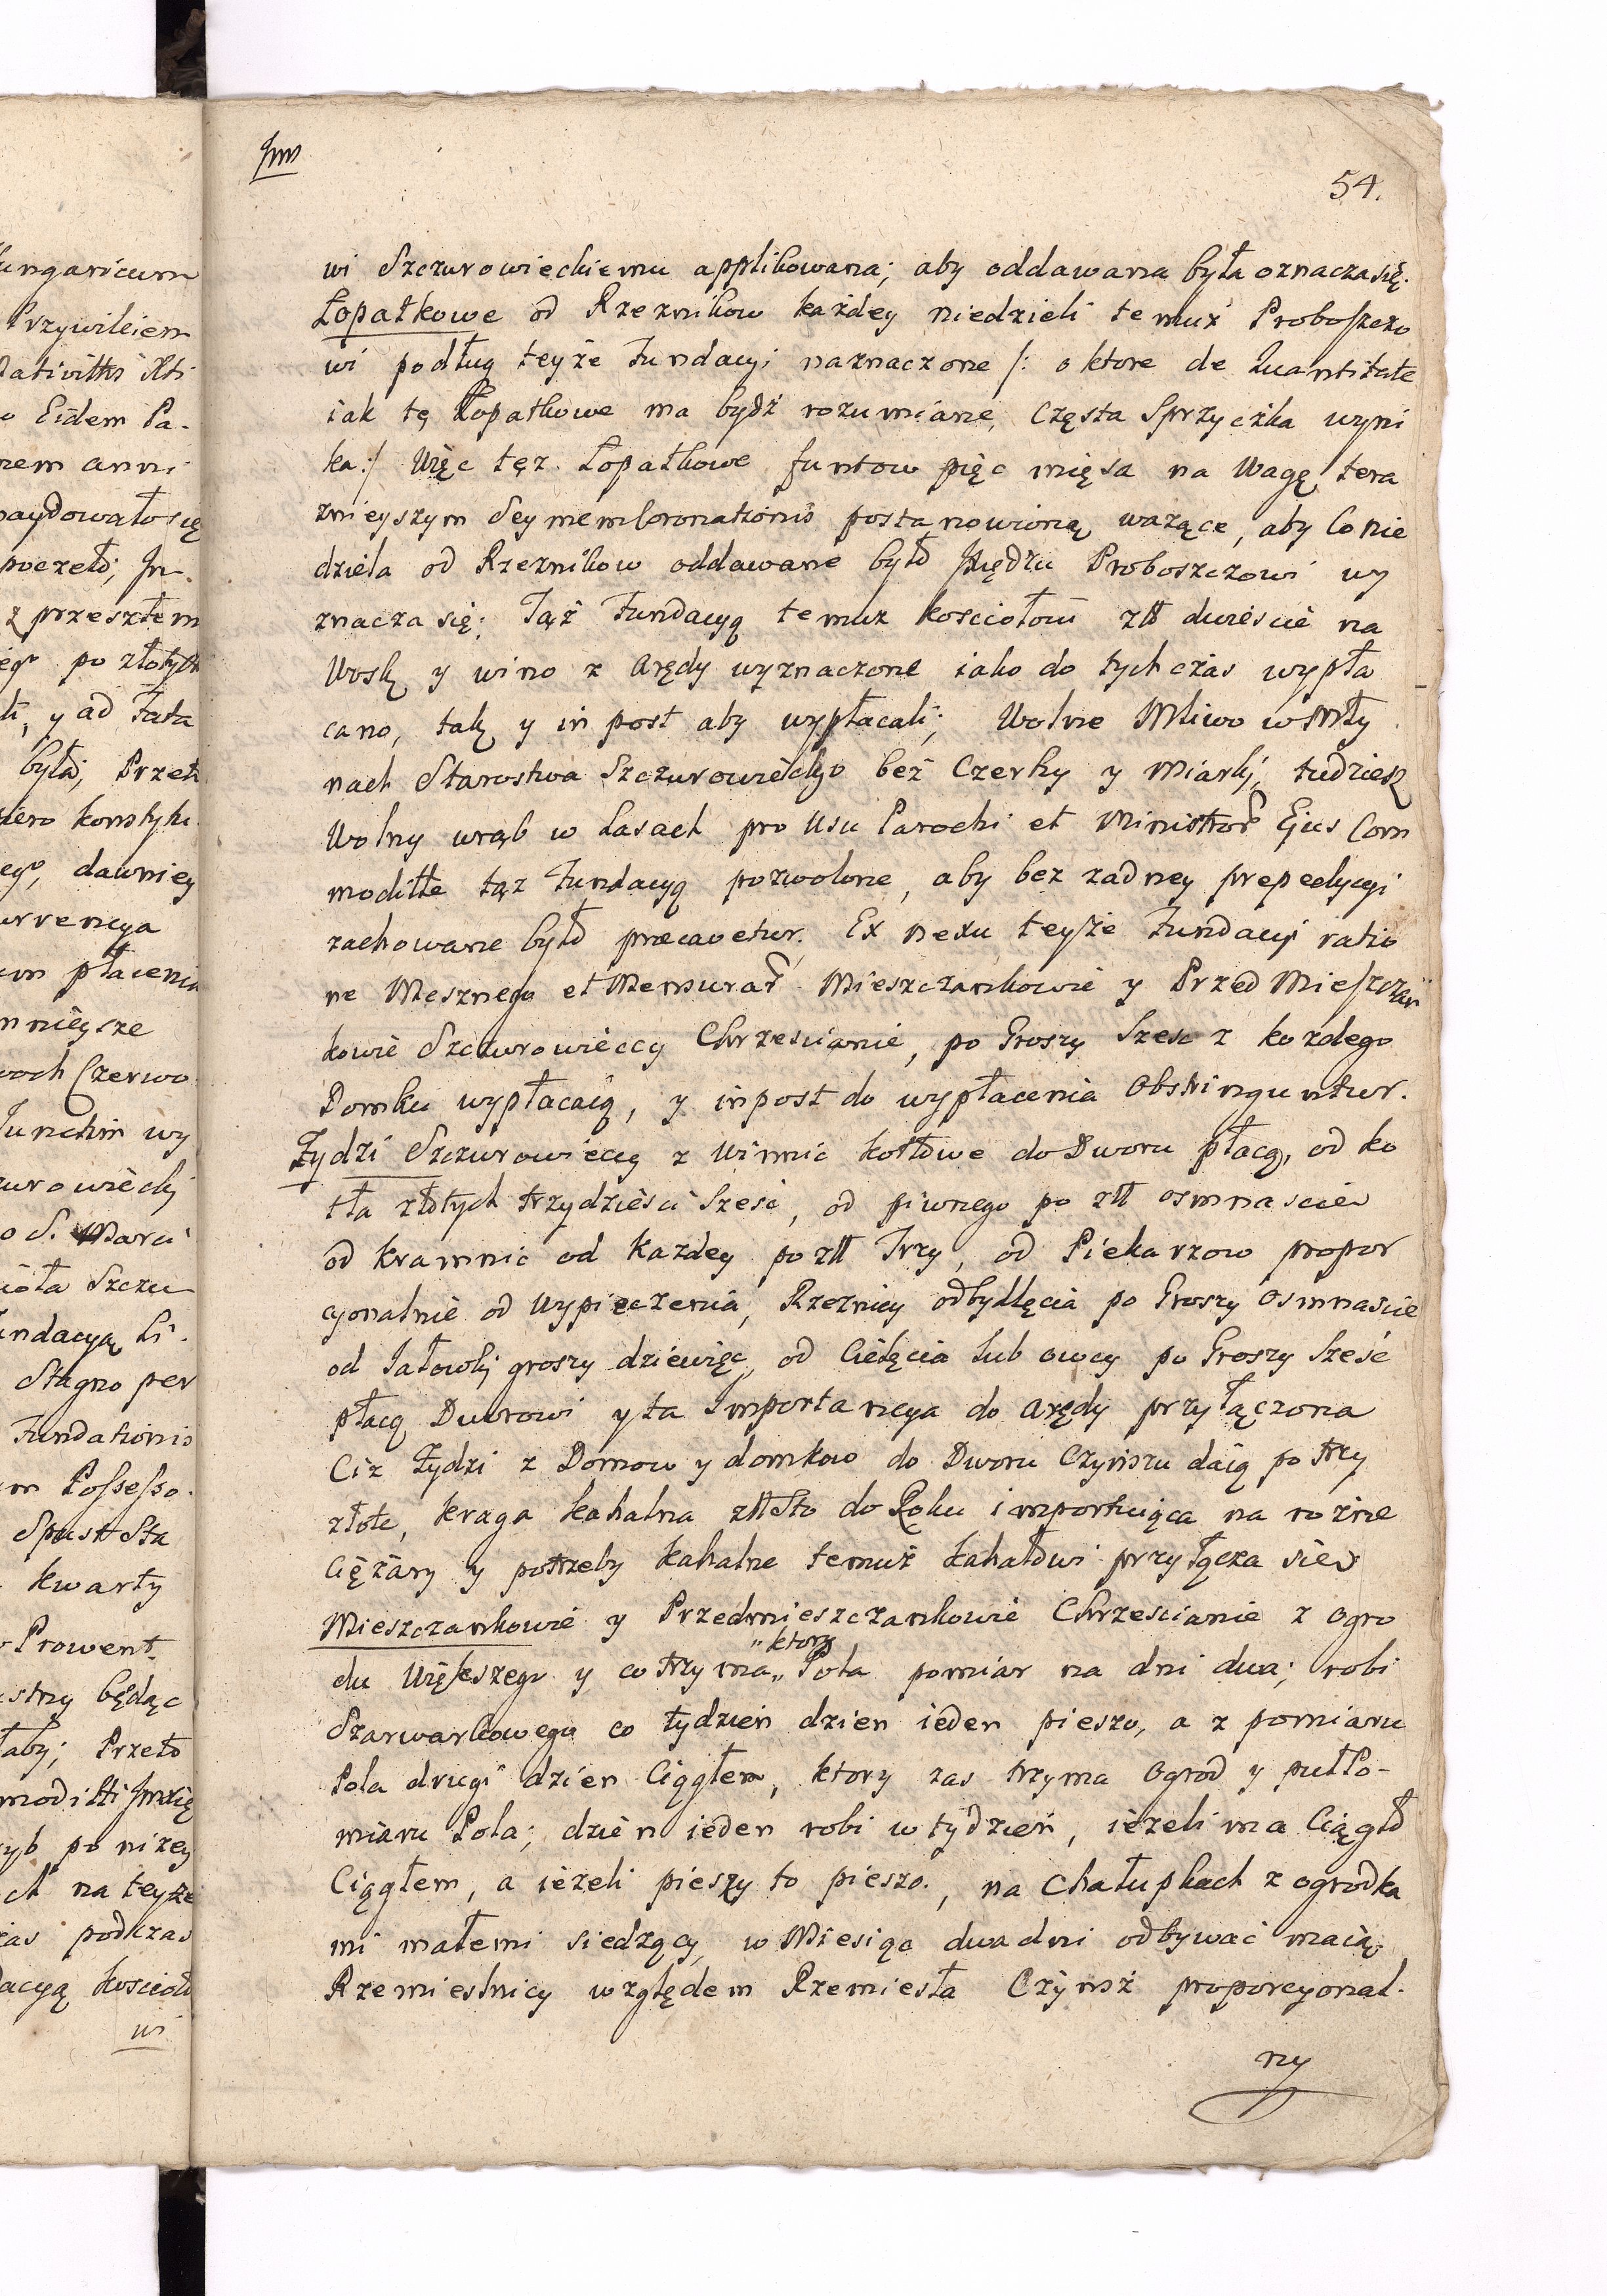 54.
wi Szczurowieckiemu applikowana; aby oddawana była oznacza się.
Łopatkowe od Rzeznikow każdey niedzieli temuż Proboszczo
wi podług teyże Fundacyi naznaczone /: o ktore de Quantitate
iak tę Łopatkowe ma bydź rozumiane, częsta Sprzyczka wyni
ka :/ Więc tęz Łopatkowe funtow pięc mięsa na Wagę tera
znieyszym Seymem Coronationis postanowioną wazące, aby Co nie
dziela od Rzeznikow oddawane było Xiędzu Proboszczowi wy
znacza się; Tąż Fundacyą temuz kosciołowi złł dwiescie na
Wosk y wino z Arędy wyznaczone iako do tych czas wypła
cano, tak y in post aby wypłacali; Wolne Mliwo w Mły
nach Starostwa Szczurowieckgo beż Czerhy y Miarki, tudziesz
Wolny wrąb w Lasach pro Usu Parochi et Ministror Ejus Com
moditte tąz Fundacyą pozwolone, aby bez zadney prepedycyi
zachowane było præcavetur. Ex nexu teyże Fundacyi ratio
ne Mesznego et Mensurar Mieszczankowie y Przed Mieszczan
kowie Szczurowieccy Chrzescianie, po Groszy Szesc z kozdego
Domku wypłacaią, y inpost do wypłacenia Obstringuntur.
Żydzi Szczurowieccy z Winnic kotłowe do Dworu płacą, od ko
tła złotych trzydziesci Szesć, od piwnego po złł osmnascie
od kramnic od każdey po złł Trzy, od Piekarzow propor
cyonalnie od Wypieczenia, Rzeznicy od bydlęcia po Groszy Osmnascie
od Jałowki groszy dziewięc, od Cielęcia lub owcy po Groszy Szesć
płacą Dworowi y ta Importancya do Arędy przyłączona
Ciz Żydzi z Domow y domkow do Dworu Czynszu daią po trzy
złote, kraga kahalna złł Sto do Roku importuiąca na rożne
Ciężary y potrzeby kahalne temuż kahałowi przyłącza sie
Mieszczankowie y Przedmieszczankowie Chrzescianie z ogro
„ktory
du Większego y co trzyma „ Pola pomiar na dni dwa; robi
Szarwarkowego co tydzień dzien ieden pieszo, a z pomiaru
Pola drugi dzien Ciągłem, ktory zas trzyma Ogrod y pułto-
miaru Pola; dzień ieden robi w tydzień, ieżeli ma Ciągło
Ciągłem, a ieżeli pieszy to pieszo., na Chałupkach z ogrodka
mi małemi siedzący, w Miesiąc dwa dni odbywać maią
Rzemieslnicy względem Rzemiesła Czynsz proporcyonal.
ny